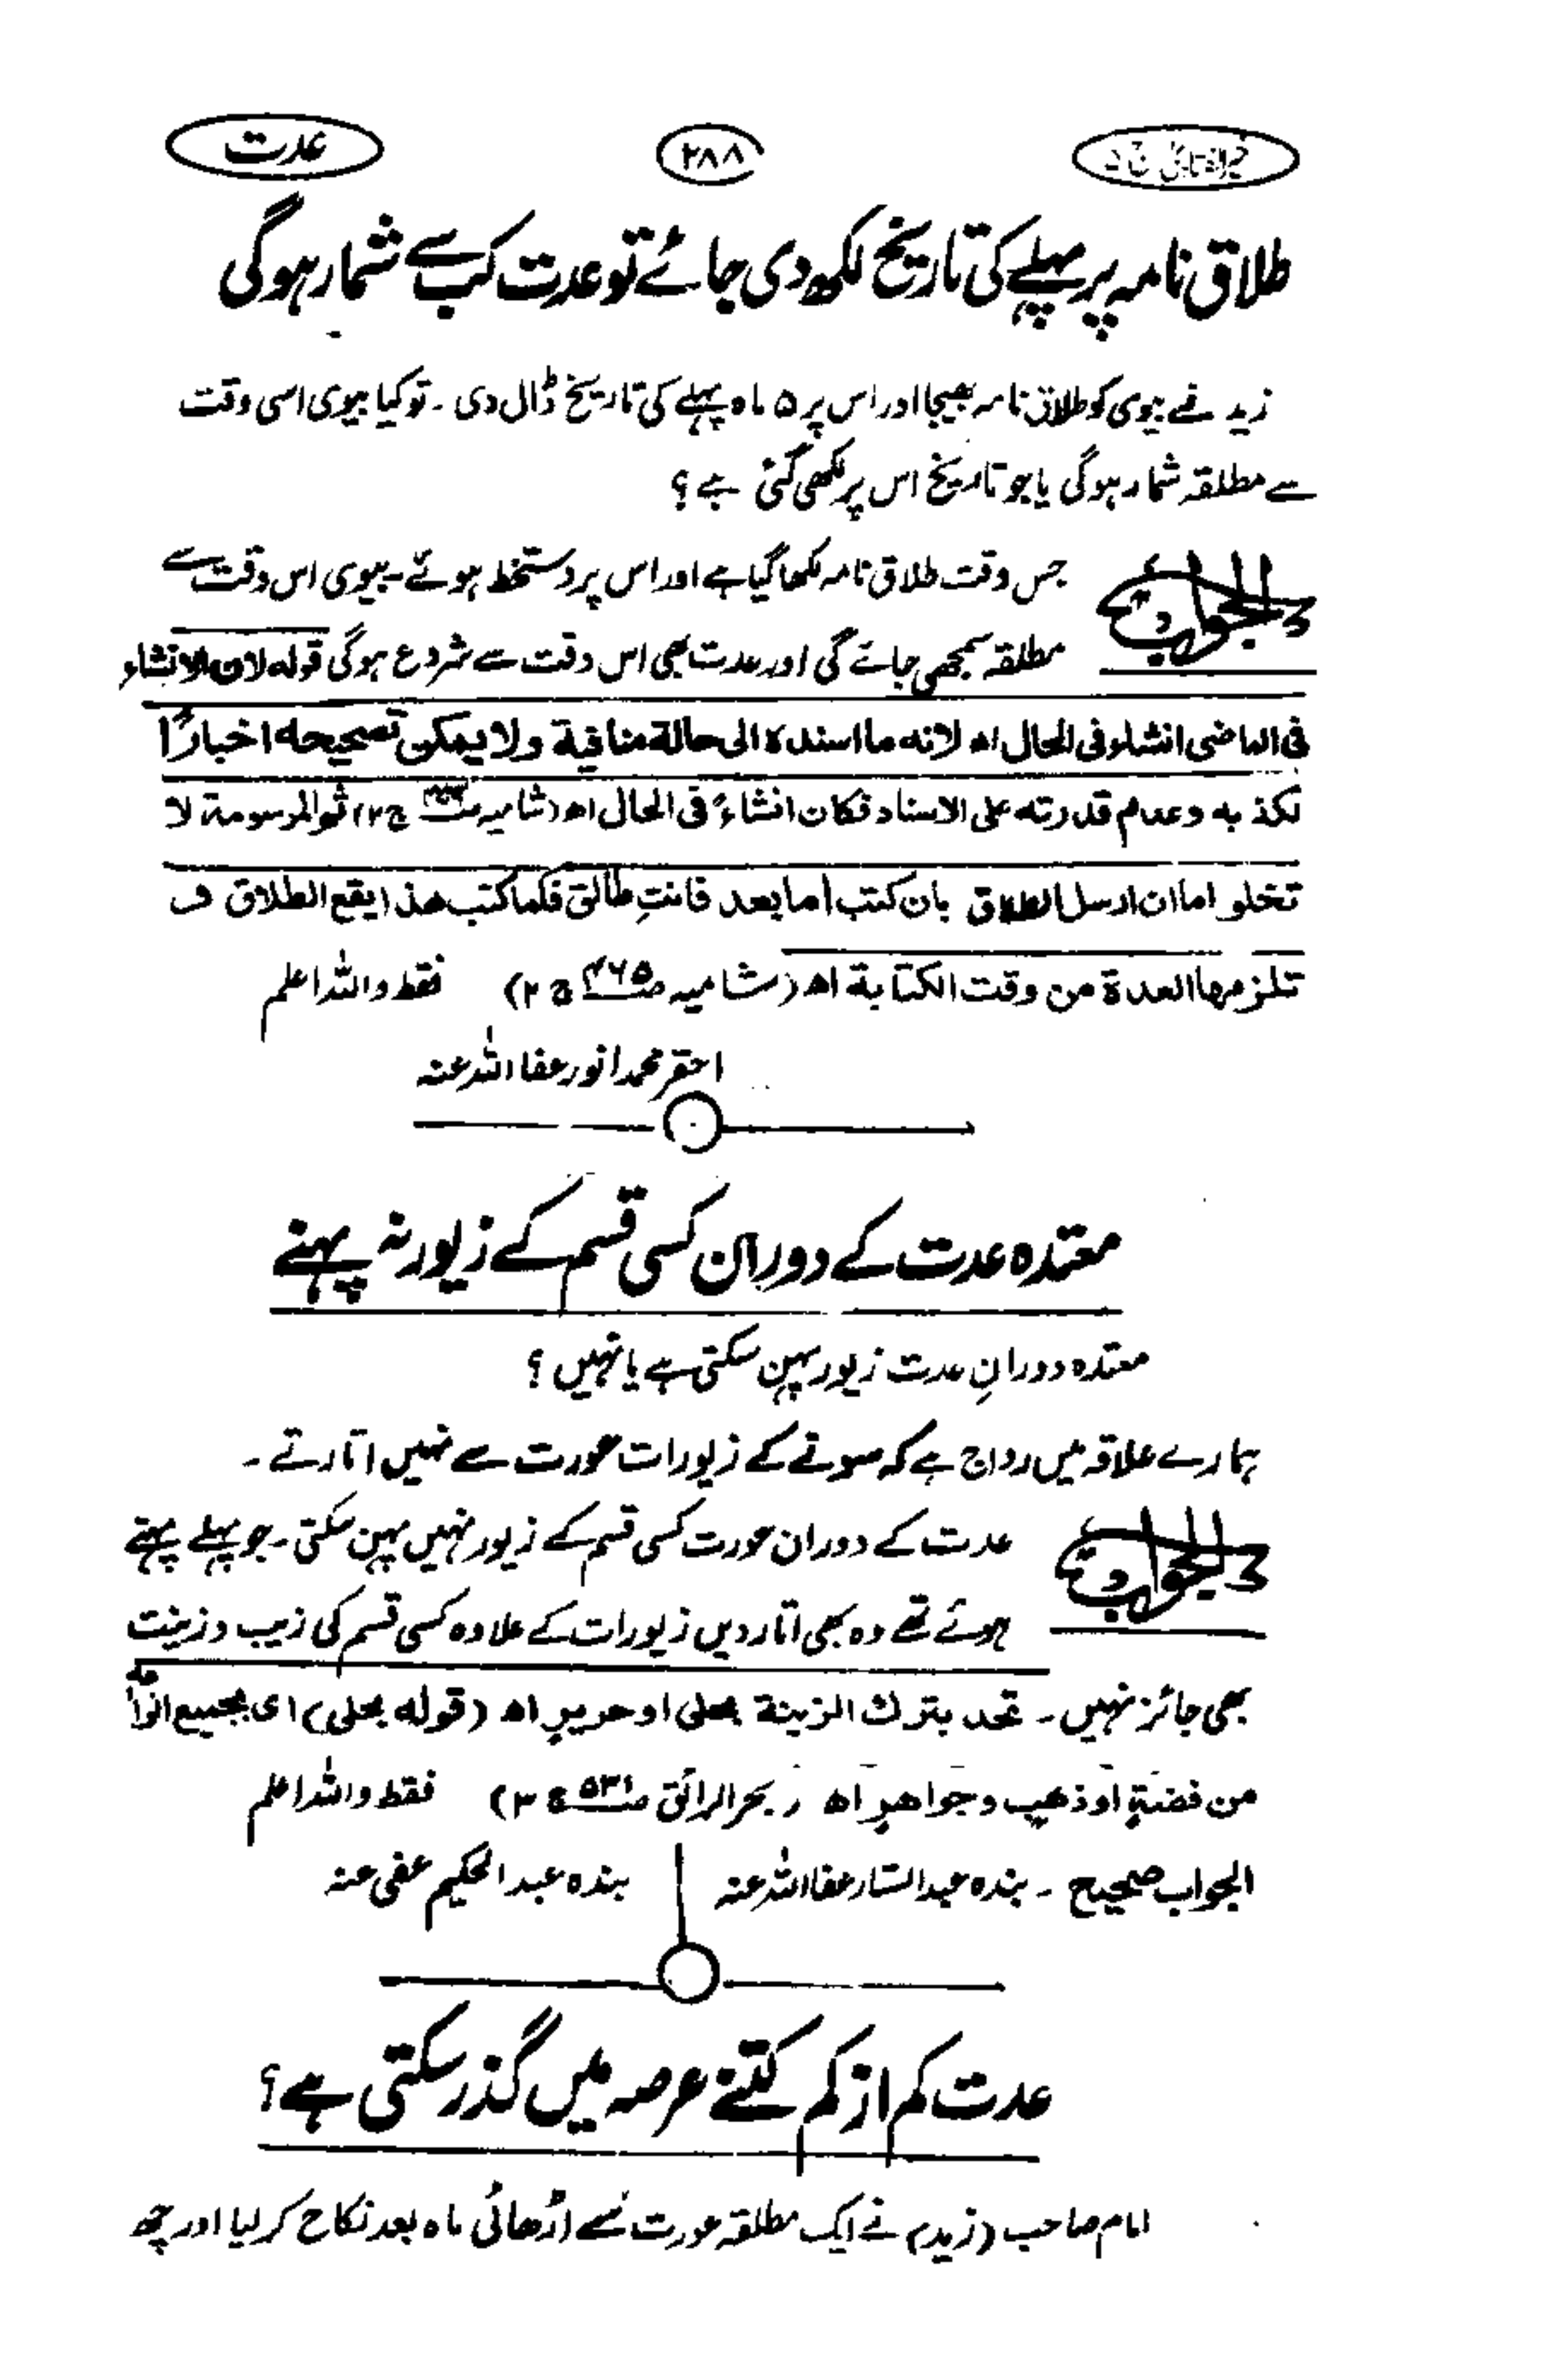 عدت
۲۸۸
طلاق نامہ پر پہلے کی تاریخ لکھ دی جائے تو عدت کب سے شمار ہوگی
زید نے بیوی کو طلاق نامہ بھیجا اور اس پر ۵ ماہ پہلے کی تاریخ ڈال دی ۔ تو کیا بیوی اسی وقت
سے مطلقہ شمار ہوگی یا جو تاریخ اس پر لکھی گئی ہے ؟
الجواب
جس وقت طلاق نامہ لکھا گیا ہے اور اس پر دستخط ہوئے ۔ بیوی اس وقت سے
مطلقہ سمجھی جائے گی اور عدت بھی اس وقت سے شروع ہوگی قوله لان الانشاء
فى الماضى انشاء فى الحال اھ لانه ما اسنده الى حالة منافية ولا يمكن تصحيحه اخبارًا
لكذ به وعدم قدرته على الاسناد فكان انشاءً فى الحال اھ (شاميه ج۲) ثم المرسومة لا
تخلو اما ان ارسل الطلاق بان كتب اما بعد فانتِ طالق فكما كتب هذا يقع الطلاق و
تلزمها العدة من وقت الكتابة اھ (شاميه ص۴۶۵ ج۲) فقط واللہ اعلم
احقر محمد انور عفا اللہ عنہ
معتدہ عدت کے دوران کسی قسم کے زیور نہ پہنے
معتدہ دورانِ عدت زیور پہن سکتی ہے یا نہیں ؟
ہمارے علاقہ میں رواج ہے کہ سونے کے زیورات عورت سے نہیں اتارتے ۔
الجواب
عدت کے دوران عورت کسی قسم کے زیور نہیں پہن سکتی ۔ جو پہلے پہنے
ہوئے تھے وہ بھی اتار دیں زیورات کے علاوہ کسی قسم کی زیب و زینت
بھی جائز نہیں ۔ تحد بترك الزينة بحلى او حرير اھ (قوله بحلى) اى بجميع انواعه
من فضةٍ او ذهبٍ وجواهرٍ اھ (بحر الرائق ج ۳) فقط واللہ اعلم
الجواب صحیح ۔ بندہ عبدالستار عفا اللہ عنہ
بندہ عبدالحکیم عفی عنہ
عدت کم از کم کتنے عرصہ میں گذر سکتی ہے ؟
امام صاحب (زید) نے ایک مطلقہ عورت سے اڑھائی ماہ بعد نکاح کر لیا اور چھ